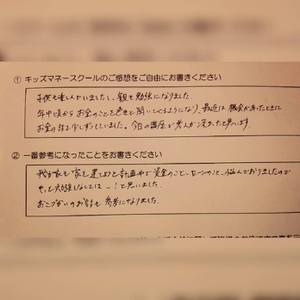 ① キッズマネースクールのご感想をご自由にお書きください
子供も楽しんでいましたし、親も勉強になりました。
年中頃からお金のことを色々と聞いてくるようになり、最近は機会があったときに
お金の話を少しずつしていました。今日の講座で考えが深まったと思います。
② 一番参考になったことをお書きください
我が家も家を建てようと計画中で資金のこと
悩んでおりましたので
勉強しなくては…!と思いました。
おこづかいのお話も参考になりました。